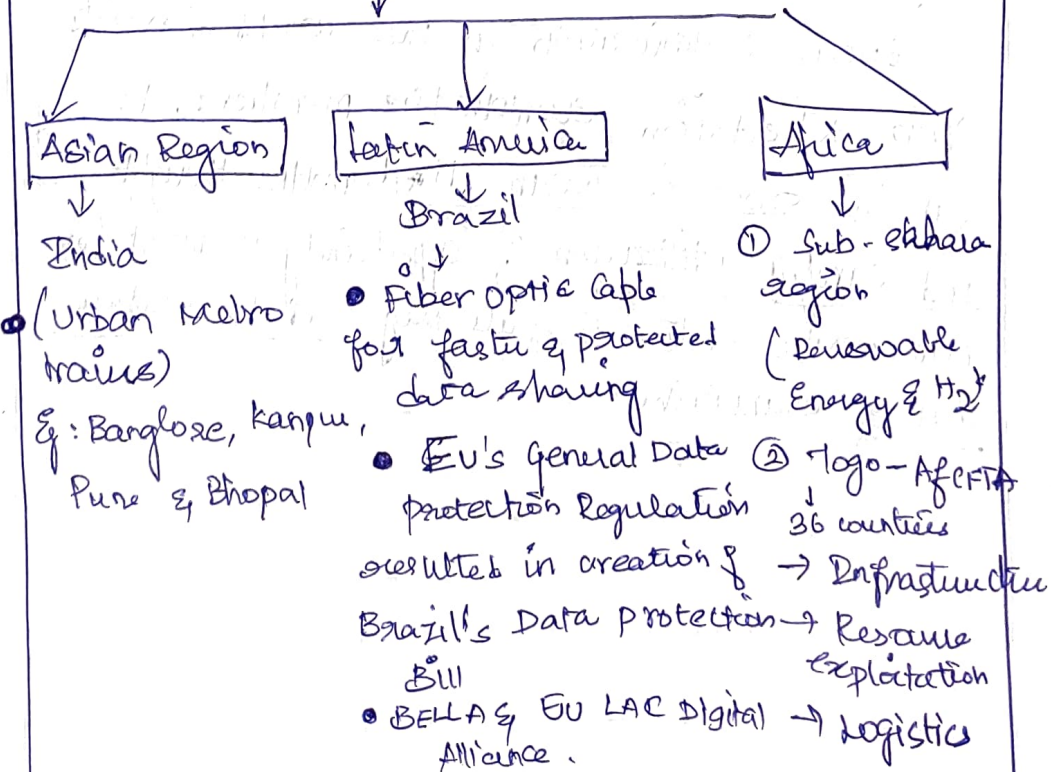 Asian Region
India
(Urban Metro
trains)
Eg: Banglore, Kanpur,
Pune & Bhopal
Latin America
Brazil
Fiber optic Cable
for faster & protected
data sharing
EU's General Data
Protection Regulation
resulted in creation of
Brazil's Data Protection
Bill
BELLA & EU LAC Digital
Alliance.
Africa
① Sub-sahara
region
(Renewable
Energy & H2)
② Togo-AfCFTA
36 countries
→ Infrastructure
→ Resource
exploitation
→ Logistics